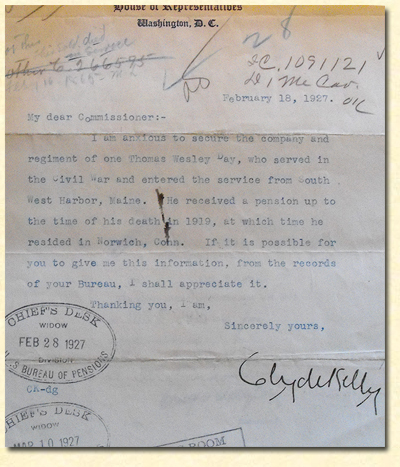 House of Representatives
Washington, D. C.
28
I.C. 1091121
D, 1 Me Cav.
OK
February 18, 1927.
My dear Commissioner:-
I am anxious to secure the company and
regiment of one Thomas Wesley Day, who served in
the Civil War and entered the service from South
West Harbor, Maine. He received a pension up to
the time of his death in 1919, at which time he
resided in Norwich, Conn. If it is possible for
you to give me this information, from the records
of your Bureau, I shall appreciate it.
Thanking you, I am,
Sincerely yours,
Clyde Kelly
CHIEF'S DESK
WIDOW
FEB 28 1927
DIVISION
U.S. BUREAU OF PENSIONS
CK-dg
CHIEF'S DESK
WIDOW
MAR 10 1927
ROOM